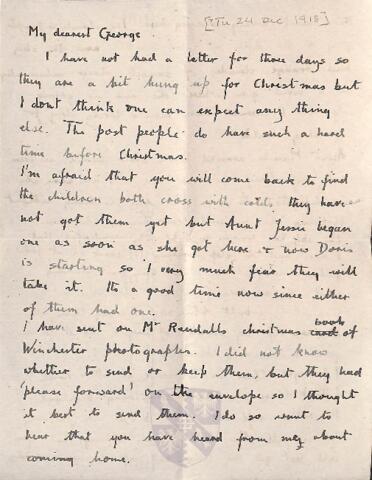 [Tu 24 Dec 1918]
My dearest George
I have not had a letter for three days so
they are a bit hung up for Christmas but
I dont think one can expect any thing
else. The post people do have such a hard
time before Christmas.
I'm afraid that you will come back to find
the children both cross with colds they have
not got them yet but Aunt Jessie began
one as soon as she got here & now Doris
is starting so I very much fear they will
take it. Its a good time now since either
of them had one.
I have sent on Mr Rendalls christmas card book of
Winchester photographs. I did not know
whether to send or keep them, but they had
'please forward' on the envelope so I thought
it best to send them. I do so want to
hear that you have heard from about
coming home.